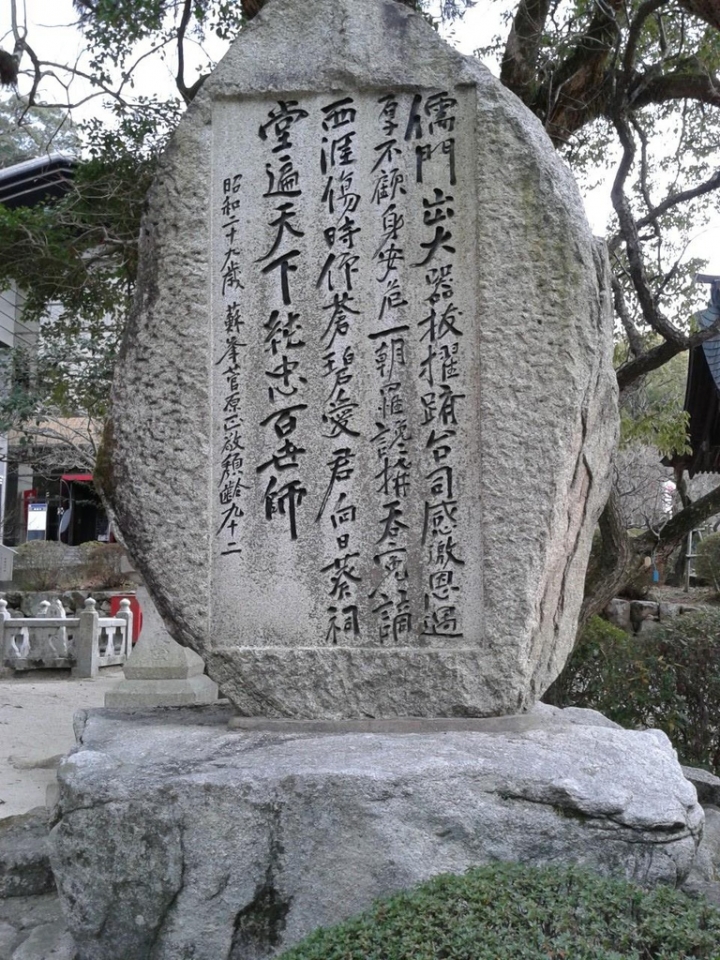 儒門出大器抜擢躋台司感激恩遇
厚不顧身安危一朝罹讒構呑冤謫
西涯傷時仰蒼碧愛君向日葵祠
堂遍天下純忠百世師
昭和二十九歳 蘇峯菅原正敬頽齢九十二